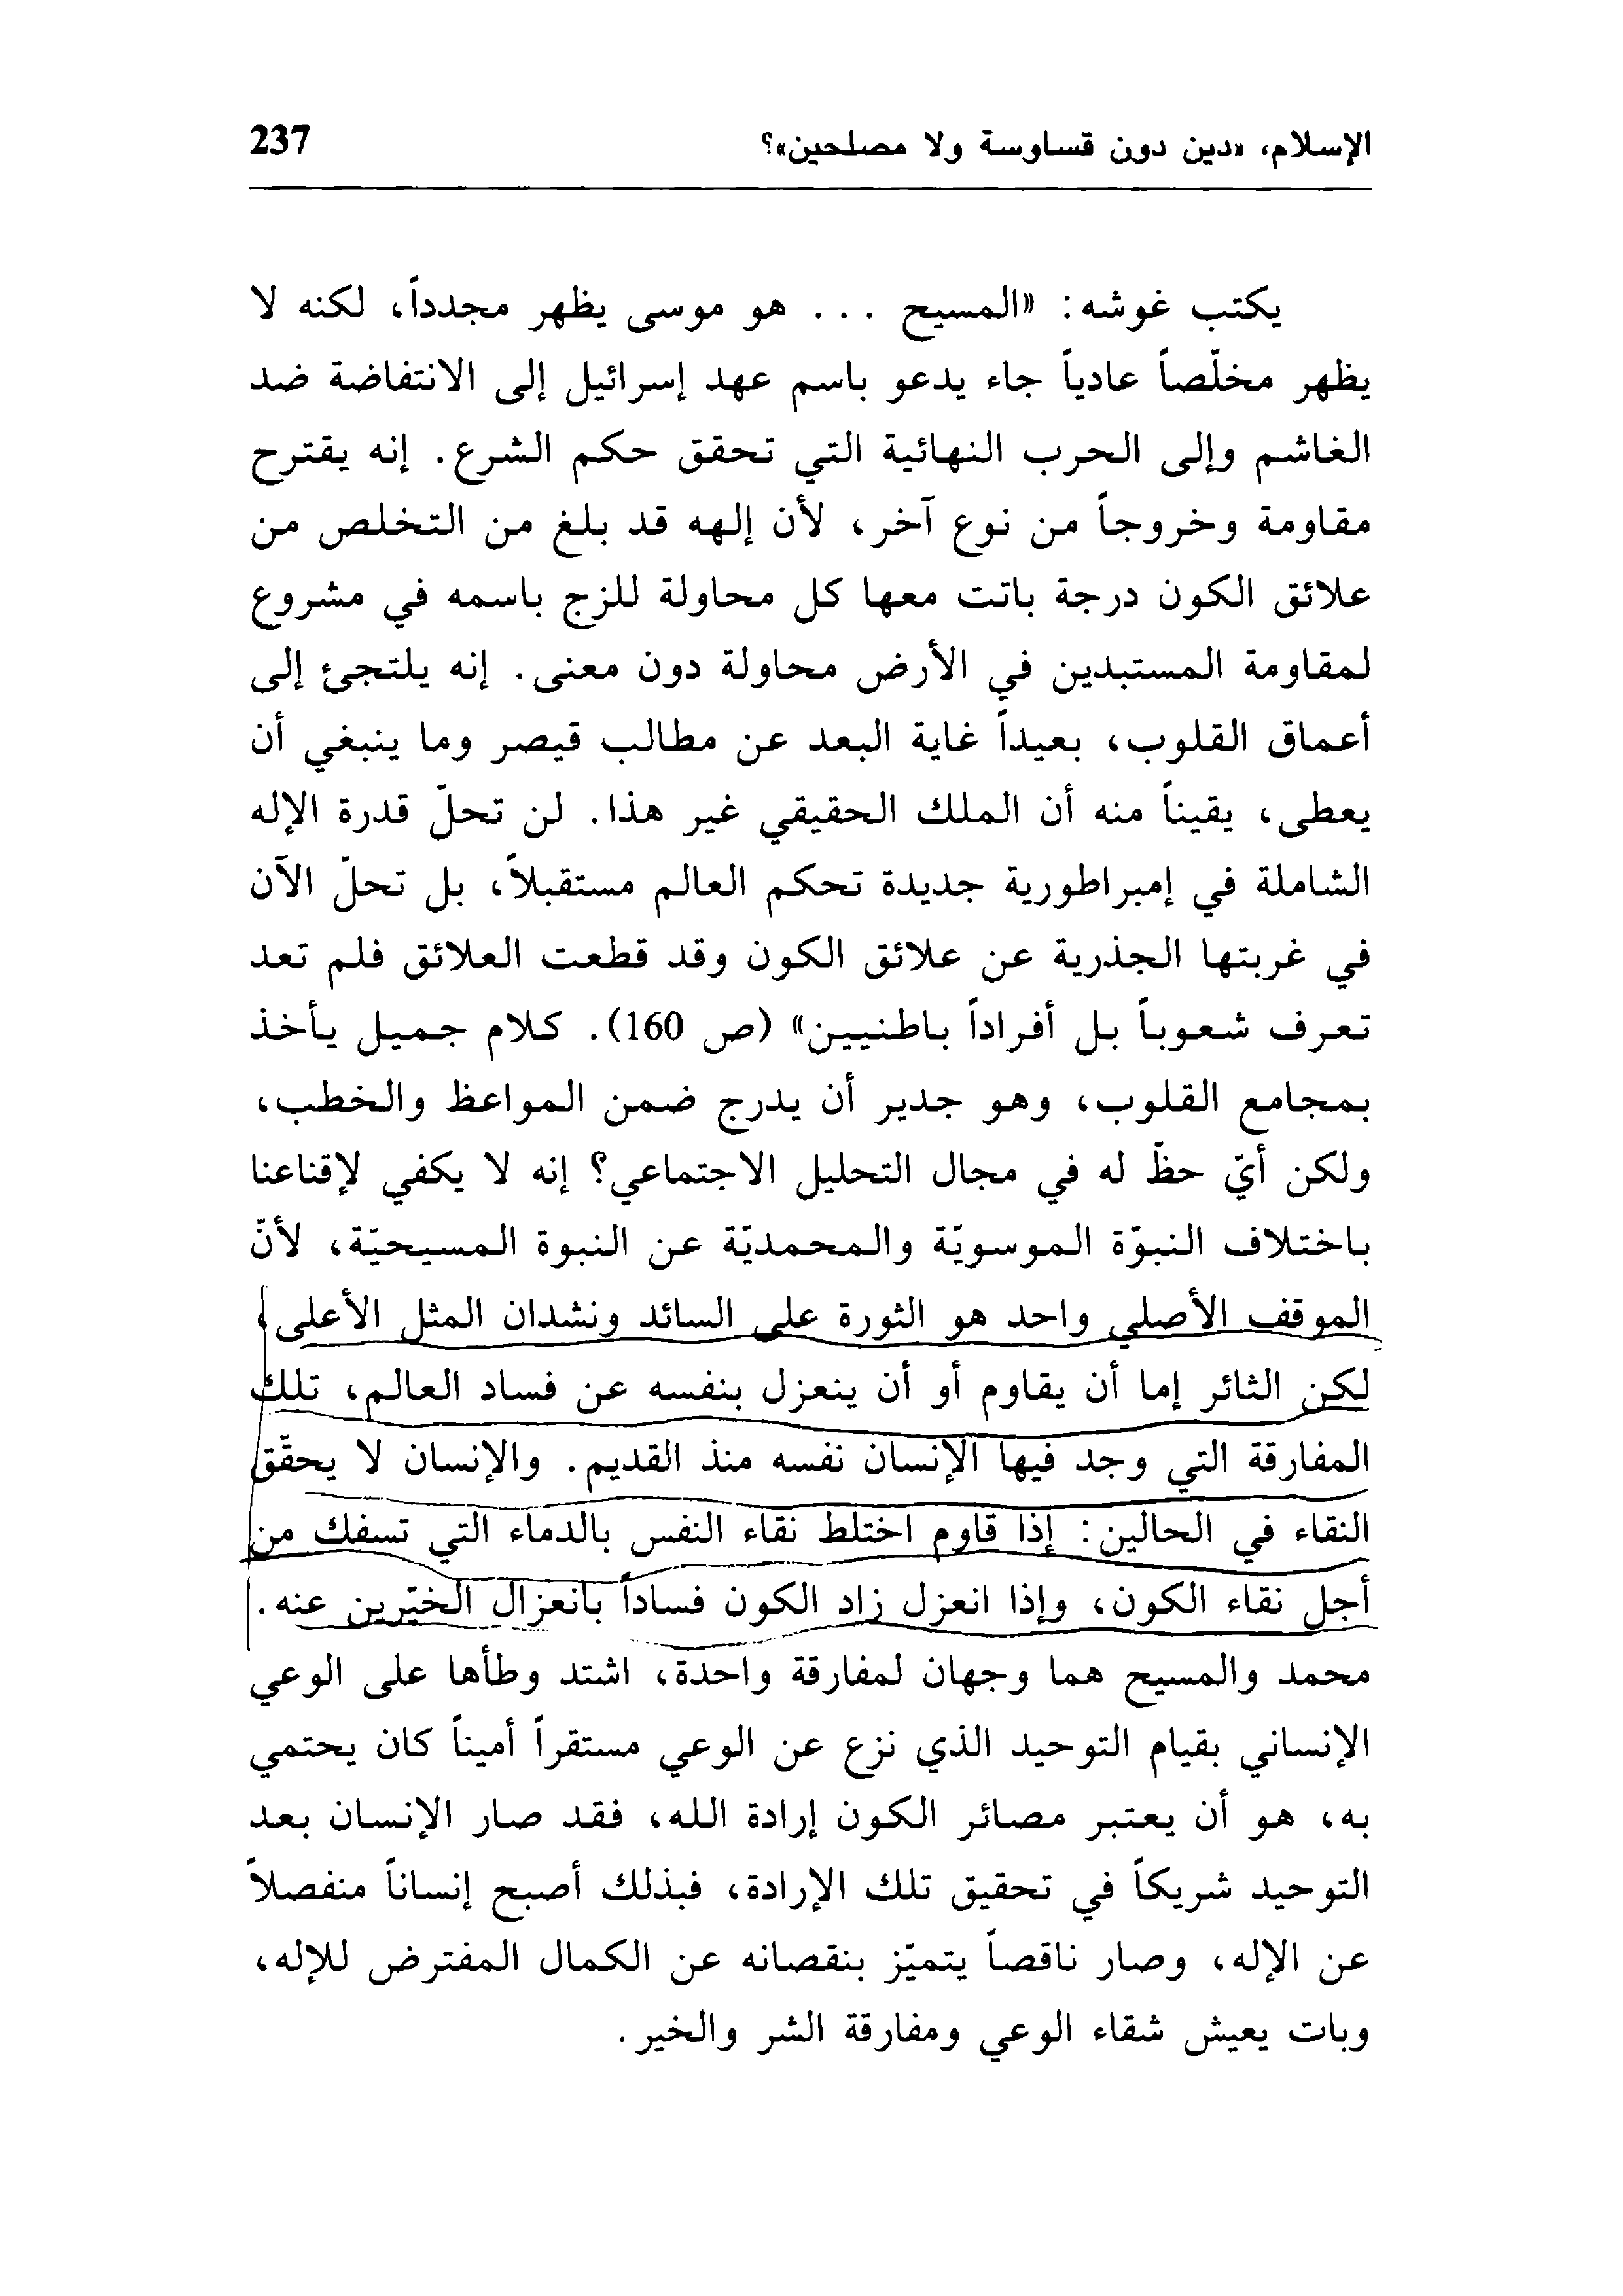 الإسلام، «دين دون قساوسة ولا مصلحين»؟ 237
يكتب غوشه: «المسيح ... هو موسى يظهر مجدداً، لكنه لا
يظهر مخلّصاً عادياً جاء يدعو باسم عهد إسرائيل إلى الانتفاضة ضد
الغاشم وإلى الحرب النهائية التي تحقق حكم الشرع. إنه يقترح
مقاومة وخروجاً من نوع آخر، لأن إلهه قد بلغ من التخلص من
علائق الكون درجة باتت معها كل محاولة للزج باسمه في مشروع
لمقاومة المستبدين في الأرض محاولة دون معنى. إنه يلتجئ إلى
أعماق القلوب، بعيداً غاية البعد عن مطالب قيصر وما ينبغي أن
يعطى، يقيناً منه أن الملك الحقيقي غير هذا. لن تحلّ قدرة الإله
الشاملة في إمبراطورية جديدة تحكم العالم مستقبلاً، بل تحلّ الآن
في غربتها الجذرية عن علائق الكون وقد قطعت العلائق فلم تعد
تعرف شعوباً بل أفراداً باطنيين» (ص 160). كلام جميل يأخذ
بمجامع القلوب، وهو جدير أن يدرج ضمن المواعظ والخطب،
ولكن أيّ حظّ له في مجال التحليل الاجتماعي؟ إنه لا يكفي لإقناعنا
باختلاف النبوّة الموسويّة والمحمديّة عن النبوة المسيحيّة، لأنّ
الموقف الأصلي واحد هو الثورة على السائد ونشدان المثل الأعلى،
لكن الثائر إما أن يقاوم أو أن ينعزل بنفسه عن فساد العالم، تلك
المفارقة التي وجد فيها الإنسان نفسه منذ القديم. والإنسان لا يحقّق
النقاء في الحالين: إذا قاوم اختلط نقاء النفس بالدماء التي تسفك من
أجل نقاء الكون، وإذا انعزل زاد الكون فساداً بانعزال الخيّرين عنه.
محمد والمسيح هما وجهان لمفارقة واحدة، اشتد وطأها على الوعي
الإنساني بقيام التوحيد الذي نزع عن الوعي مستقراً أميناً كان يحتمي
به، هو أن يعتبر مصائر الكون إرادة الله، فقد صار الإنسان بعد
التوحيد شريكاً في تحقيق تلك الإرادة، فبذلك أصبح إنساناً منفصلاً
عن الإله، وصار ناقصاً يتميّز بنقصانه عن الكمال المفترض للإله،
وبات يعيش شقاء الوعي ومفارقة الشر والخير.